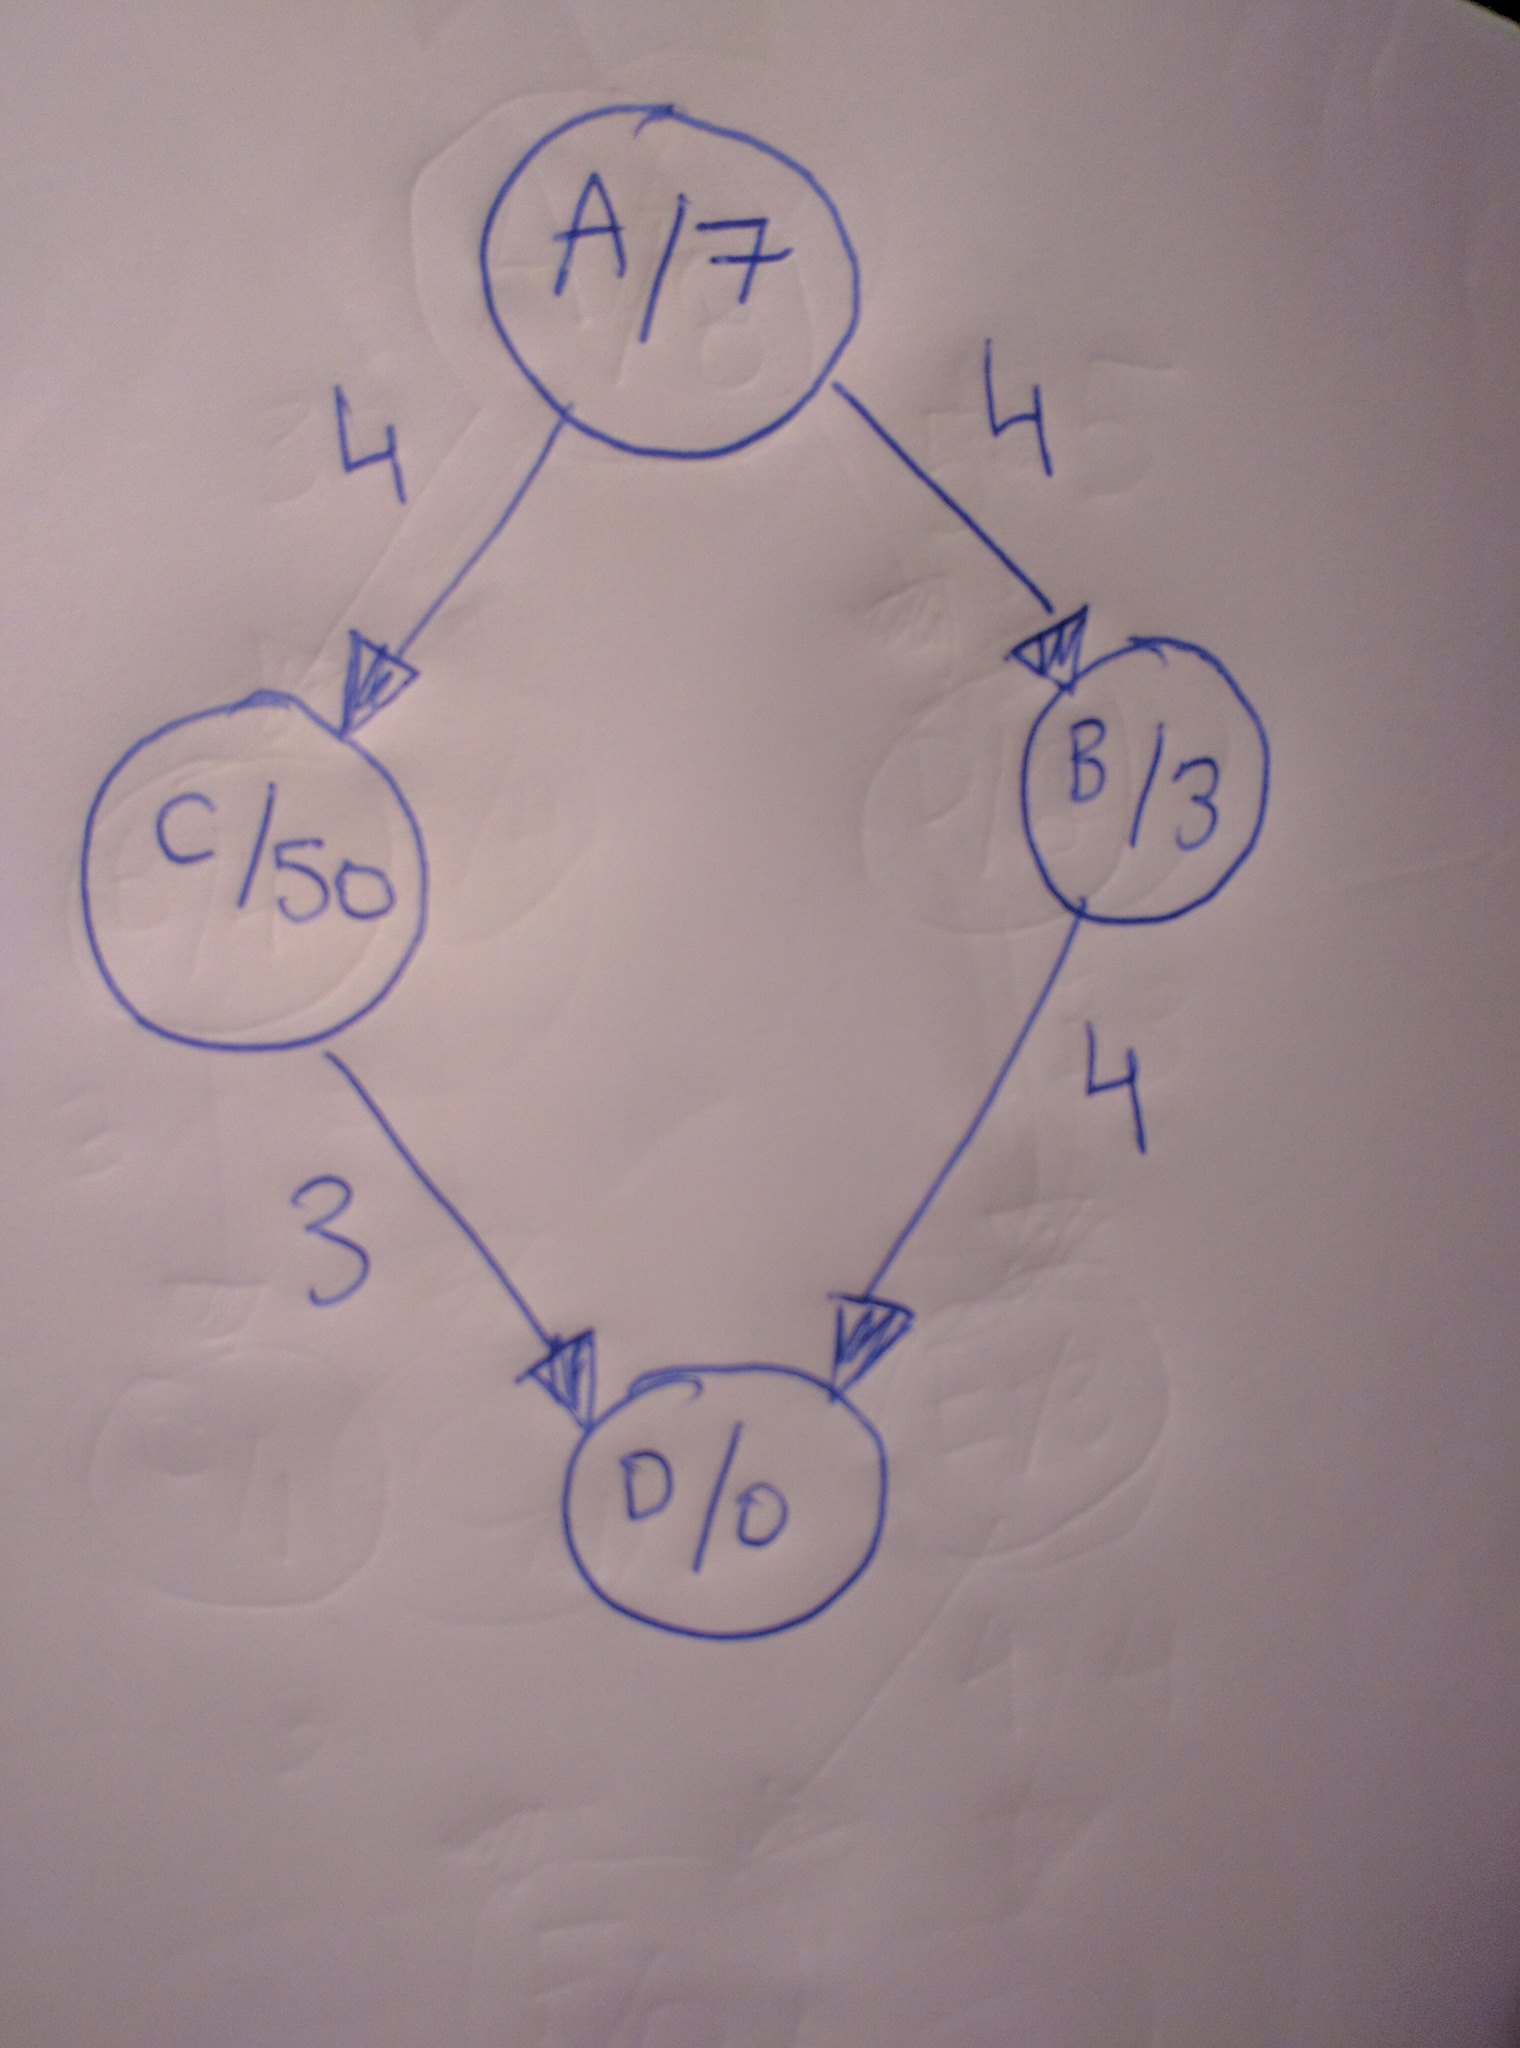 A/7
4
4
C/50
B/3
4
3
D/0